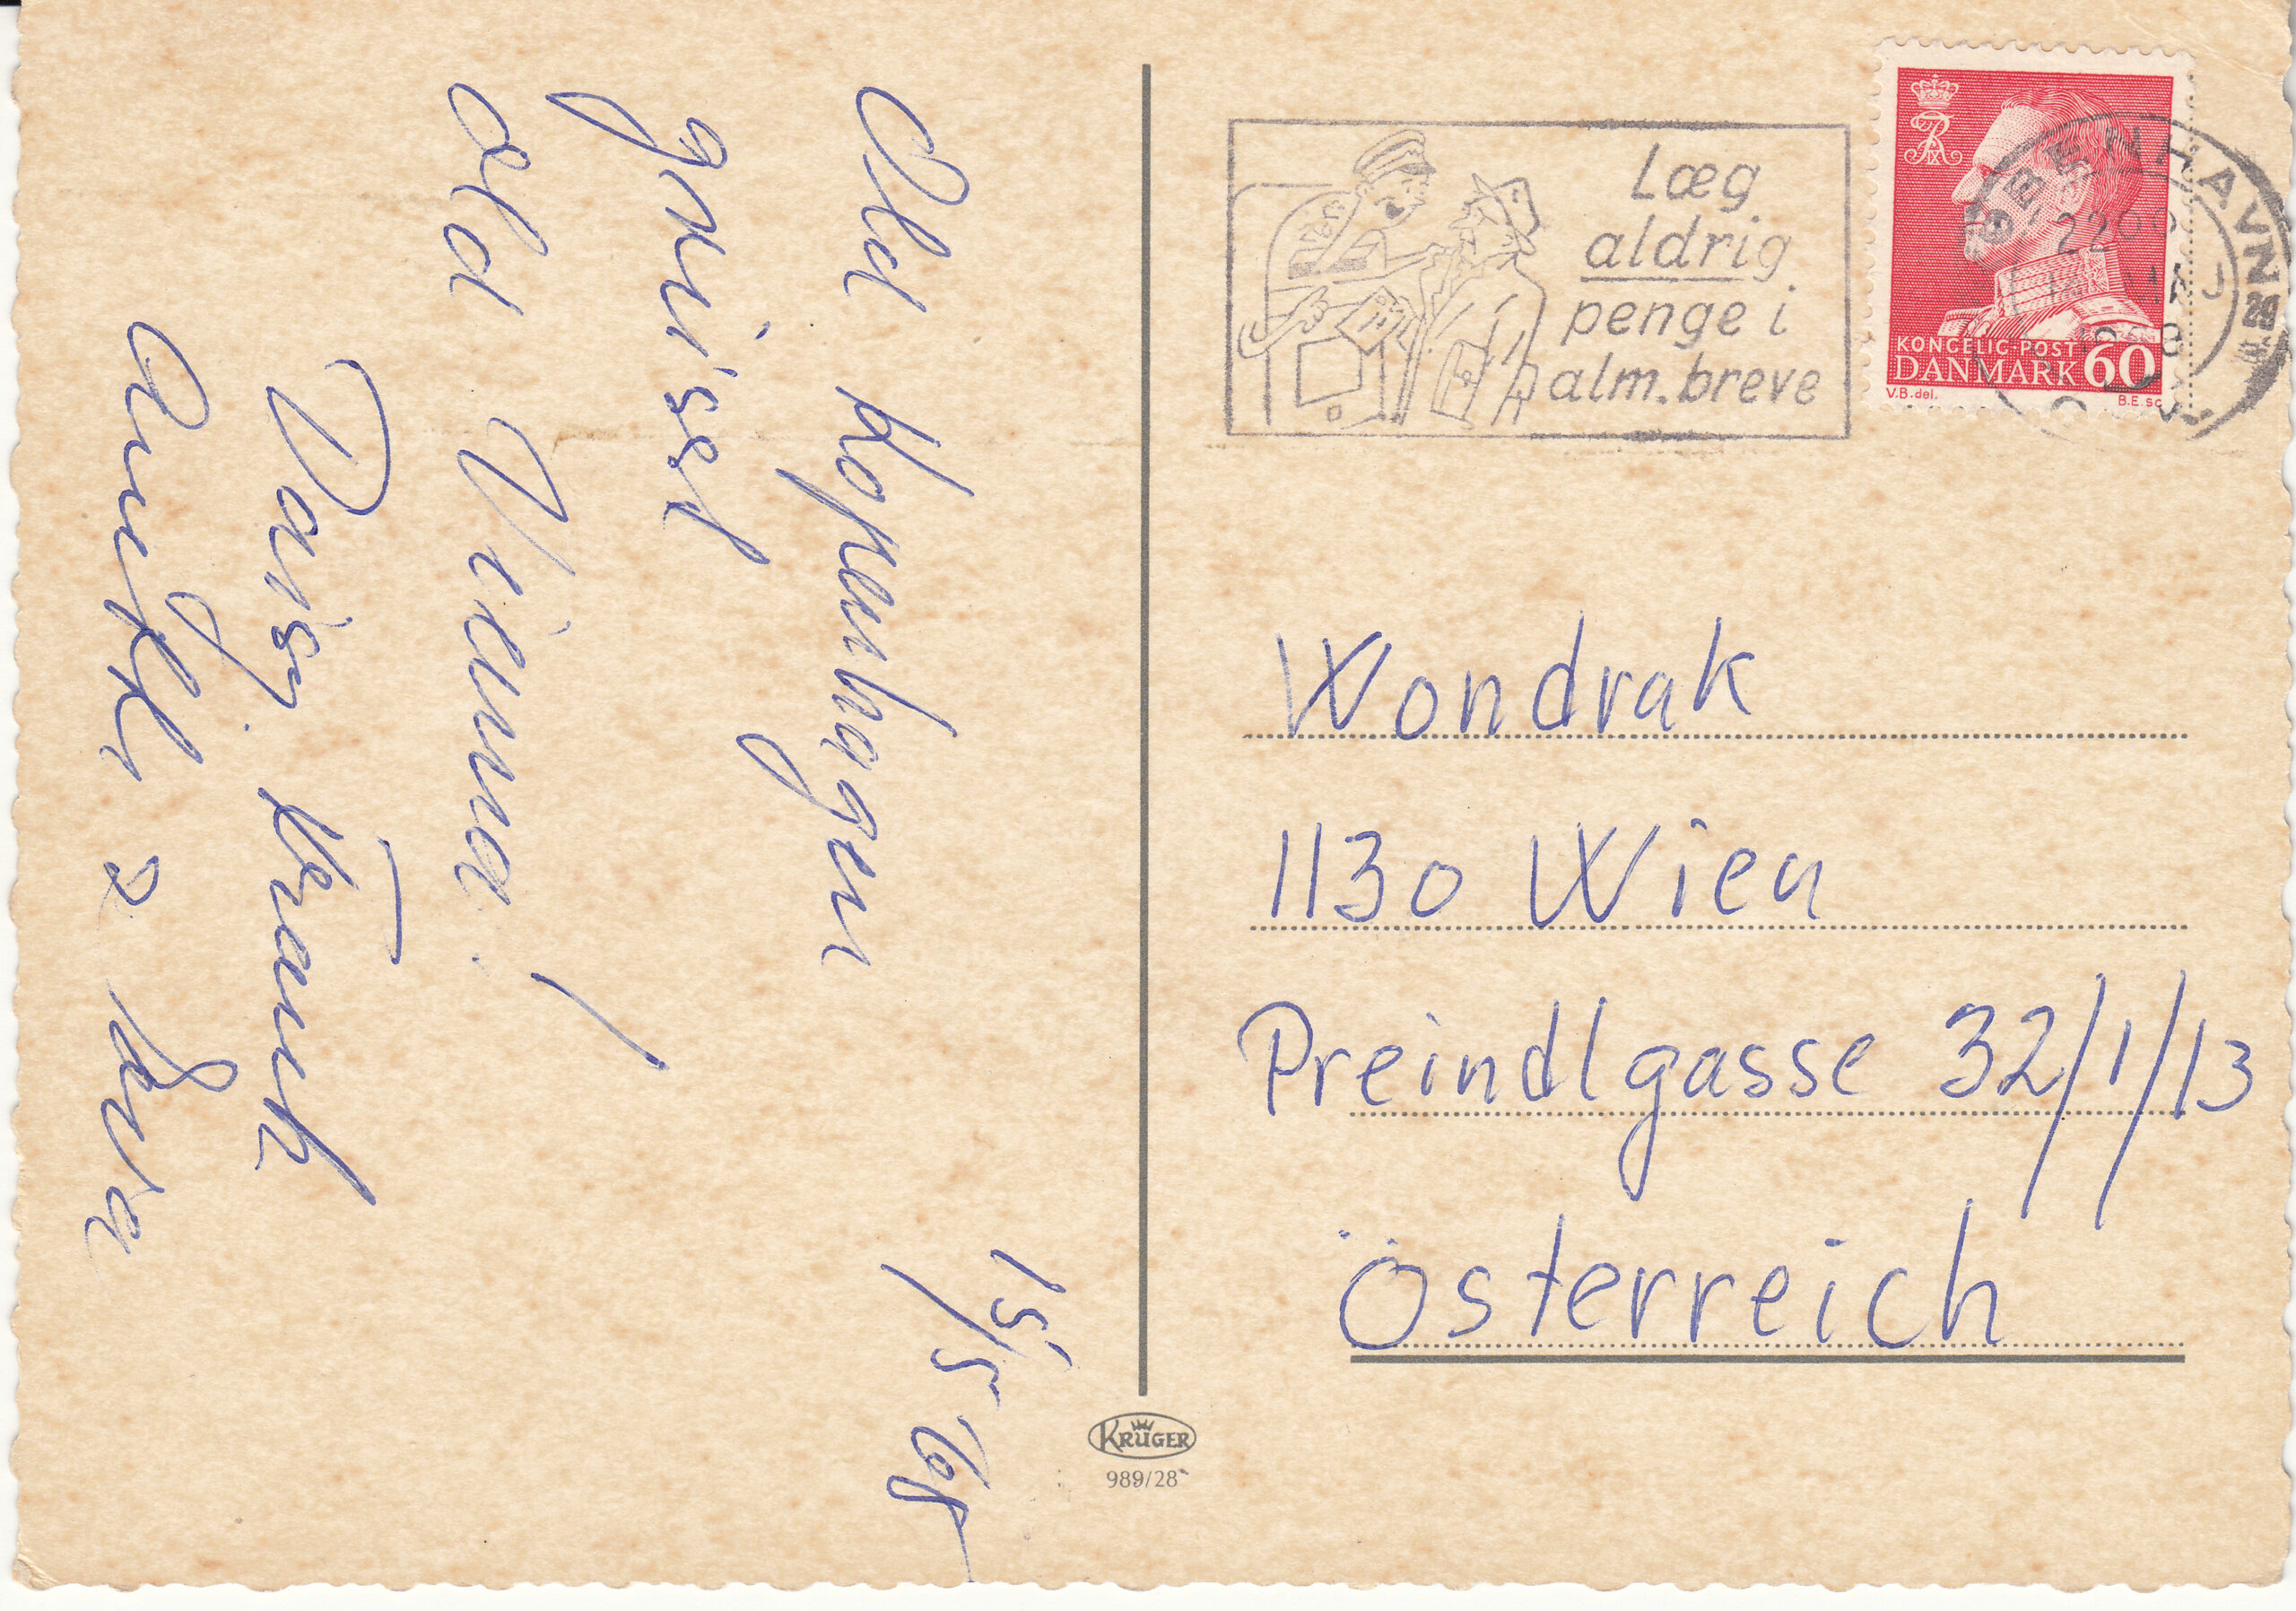 15/5 68
Old Kopenhagen
grüsst
old Vienna!
Daisy, Franck
Eva
Læg
aldrig
penge i
alm. breve
KØBENHAVN
KONGELIG POST
DANMARK 60
V.B. del.
B.E. sc
Wondrak
1130 Wien
Preindlgasse 32/1/13
Österreich
KRÜGER
989/28